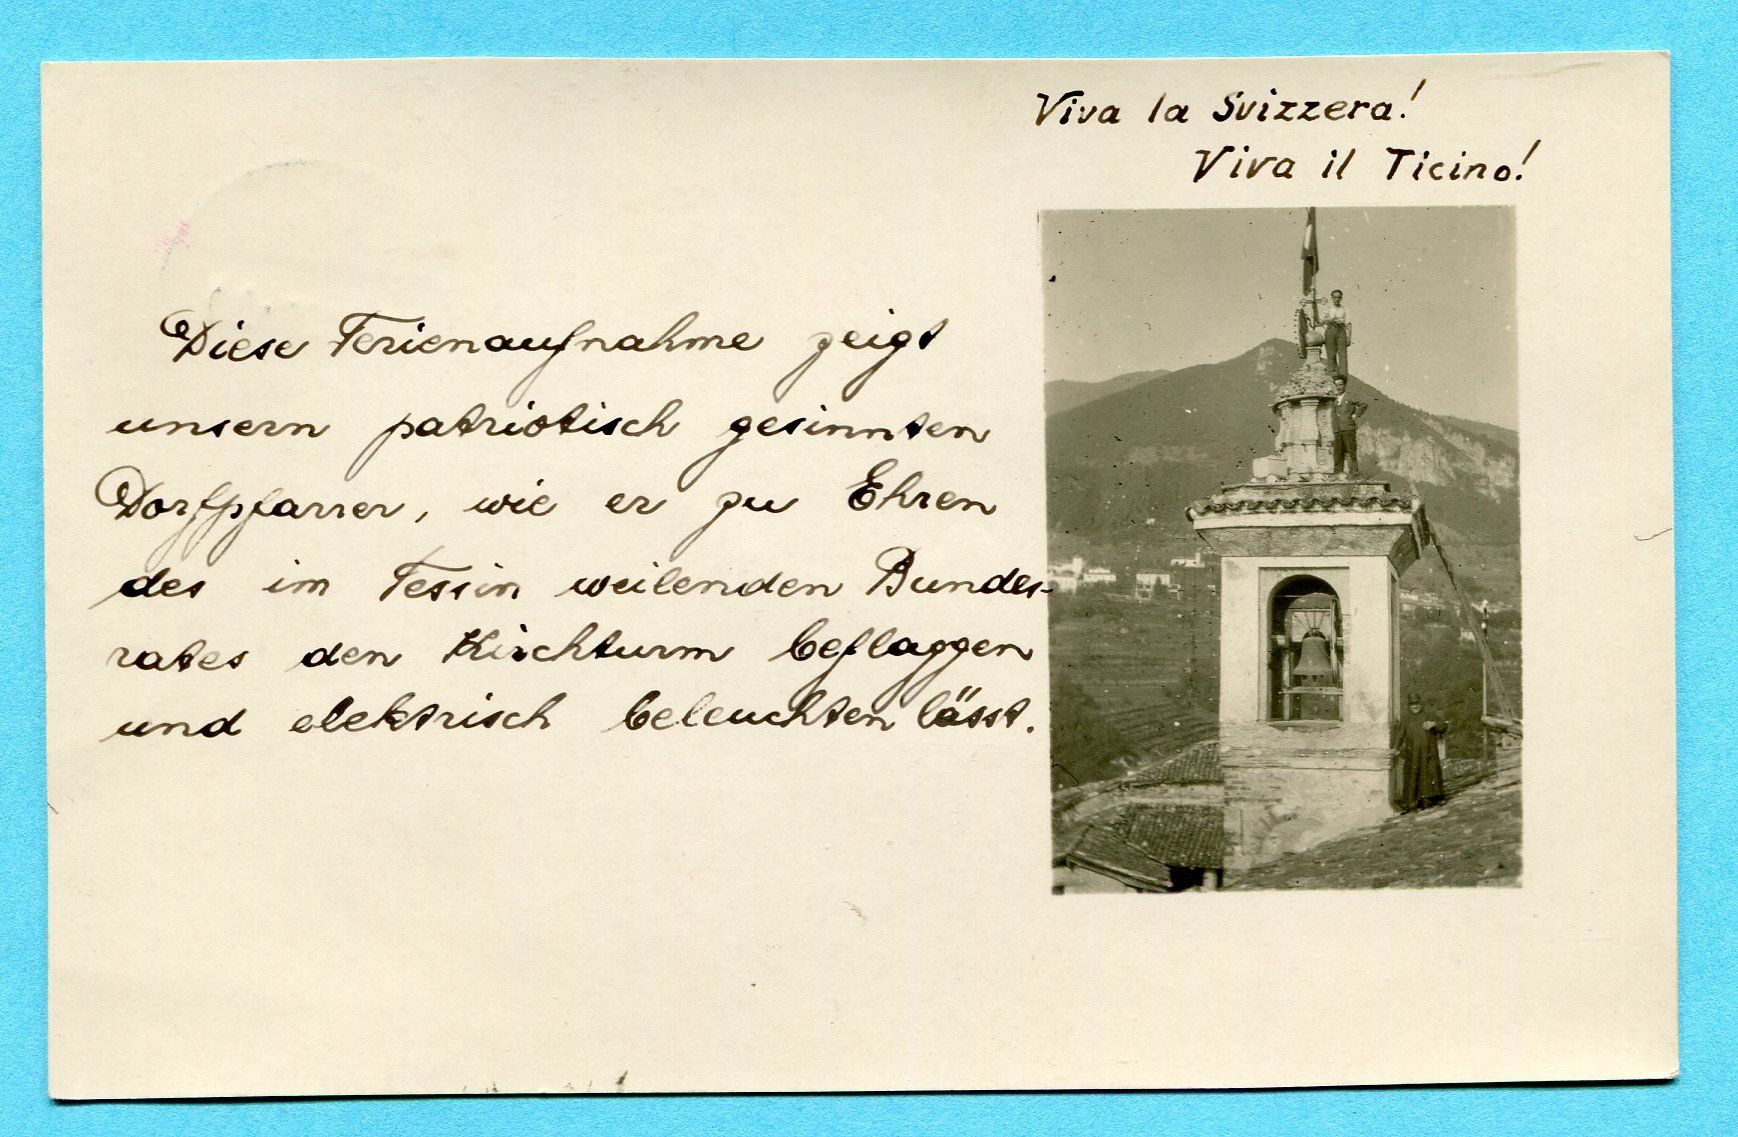 Viva la Svizzera!
Viva il Ticino!
Diese Ferienaufnahme zeigt
unsern patriotisch gesinnten
Dorfpfarrer, wie er zu Ehren
des im Tessin weilenden Bundes-
rates den Kirchturm beflaggen
und elektrisch beleuchten lässt.